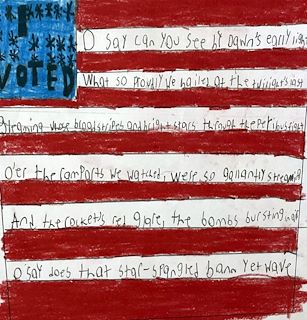 I
VOTED
O say can you see by dawn's early light
What so proudly we hailed at the twilight's last
gleaming whose broad stripes and bright stars through the perilous fight
O'er the ramparts we watched, were so gallantly streaming
And the rocket's red glare, the bombs bursting in air
O say does that star-spangled bann yet wave